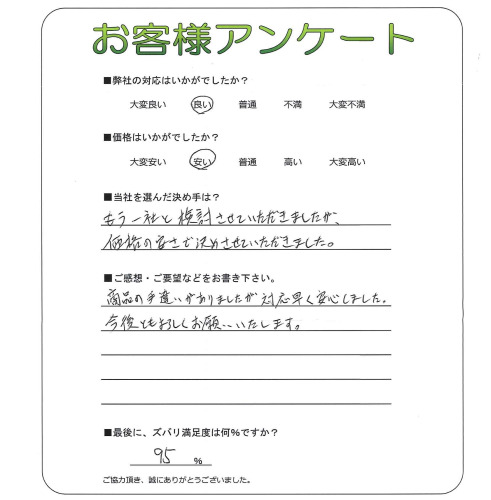 お客様アンケート
■弊社の対応はいかがでしたか？
大変良い 良い 普通 不満 大変不満
■価格はいかがでしたか？
大変安い 安い 普通 高い 大変高い
■当社を選んだ決め手は？
もう一社と検討させていただきましたが、
価格の安さで決めさせていただきました。
■ご感想・ご要望などをお書き下さい。
商品の手違いがありましたが対応早く安心しました。
今後ともよろしくお願いいたします。
■最後に、ズバリ満足度は何%ですか？
95 %
ご協力頂き、誠にありがとうございました。